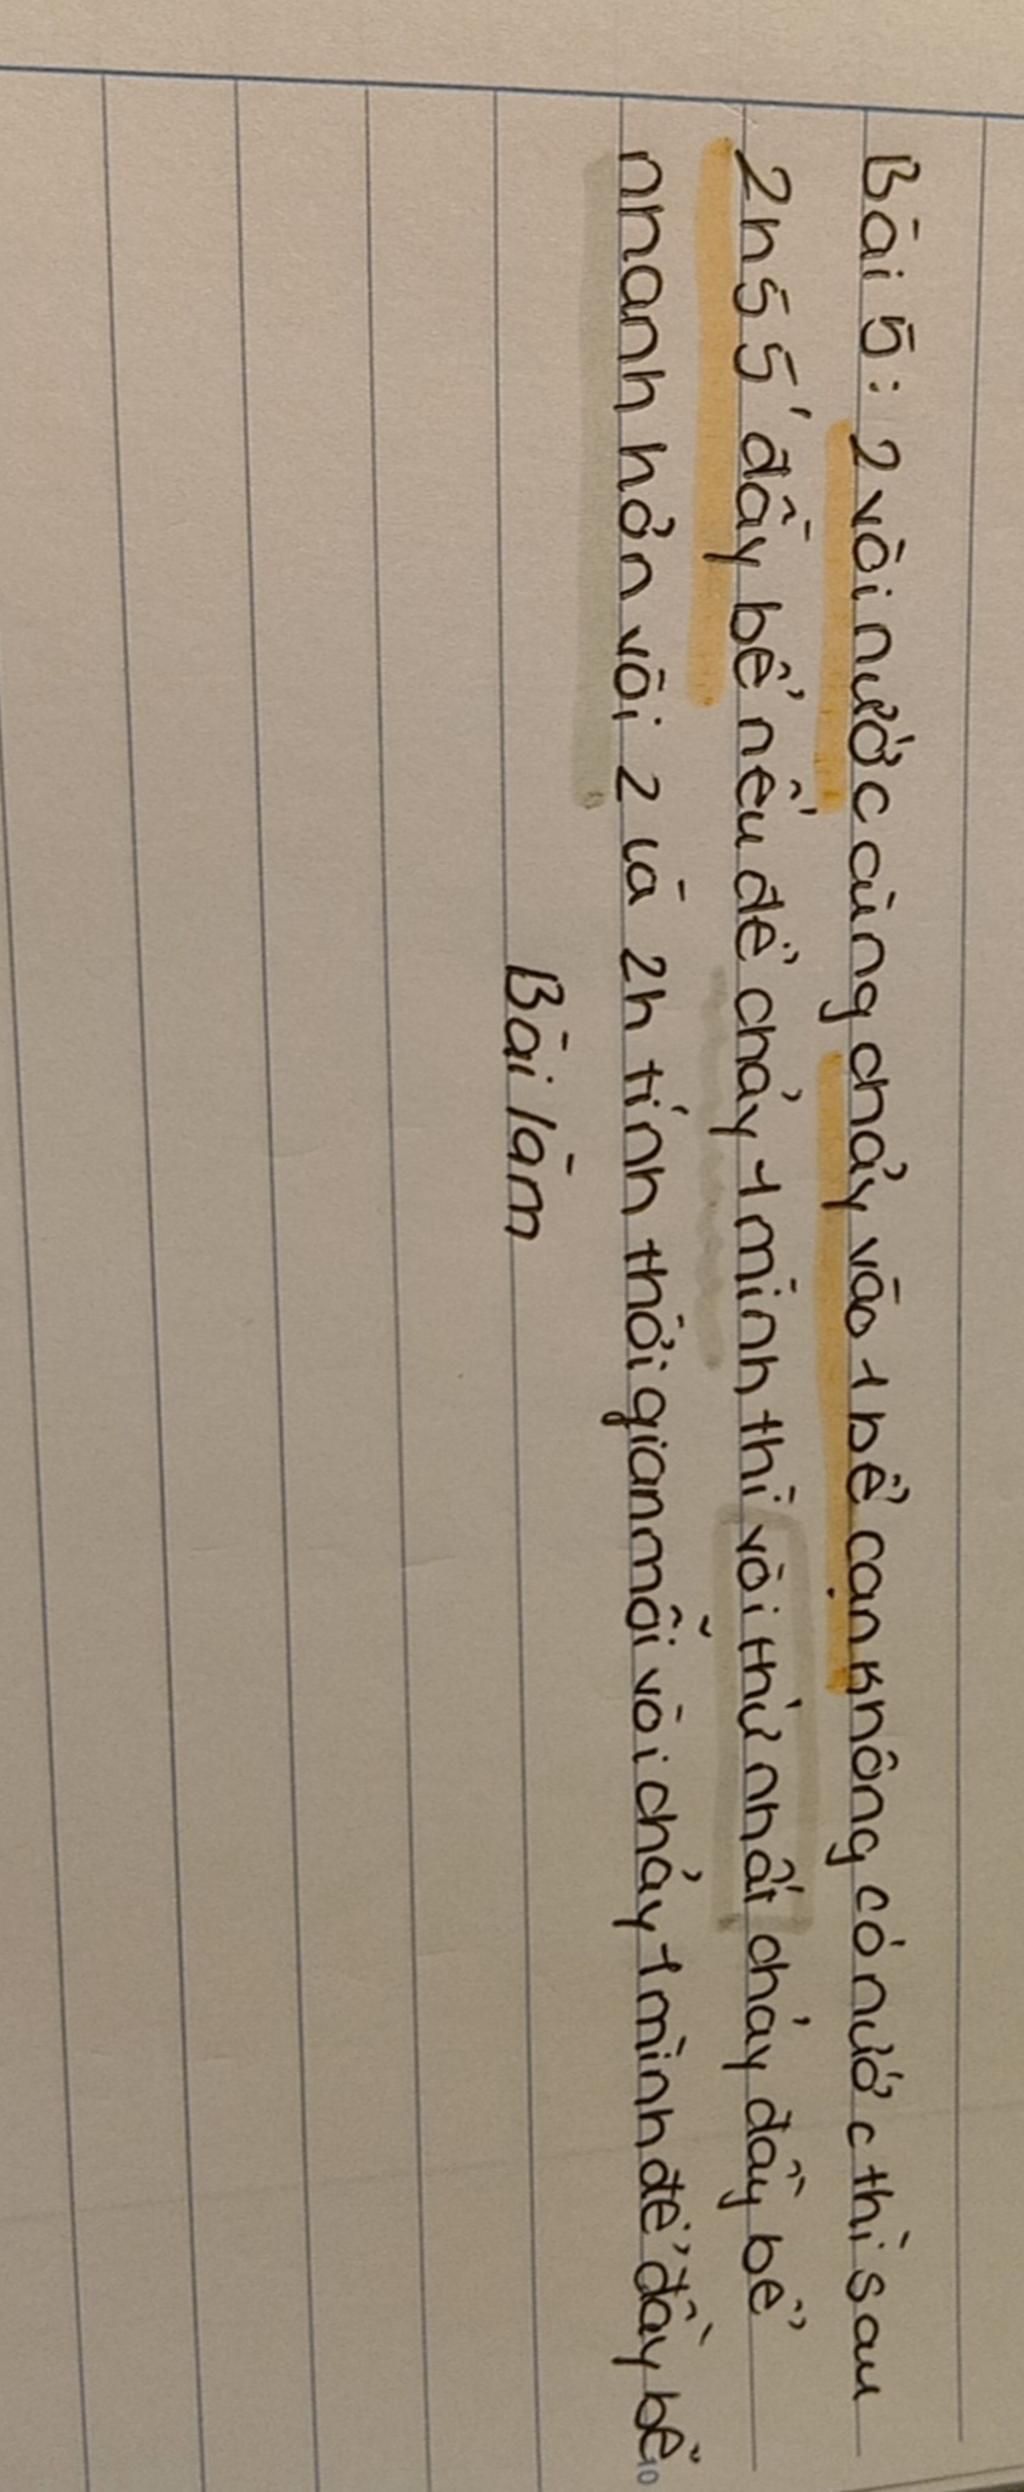 Bài 5: 2 vòi nước cùng chảy vào 1 bể cạn không có nước thì sau
2h55' đầy bể nếu để chảy 1 mình thì vòi thứ nhất chảy đầy bể
nhanh hơn vòi 2 là 2h tính thời gian mỗi vòi chảy 1 mình để đầy bể
Bài làm